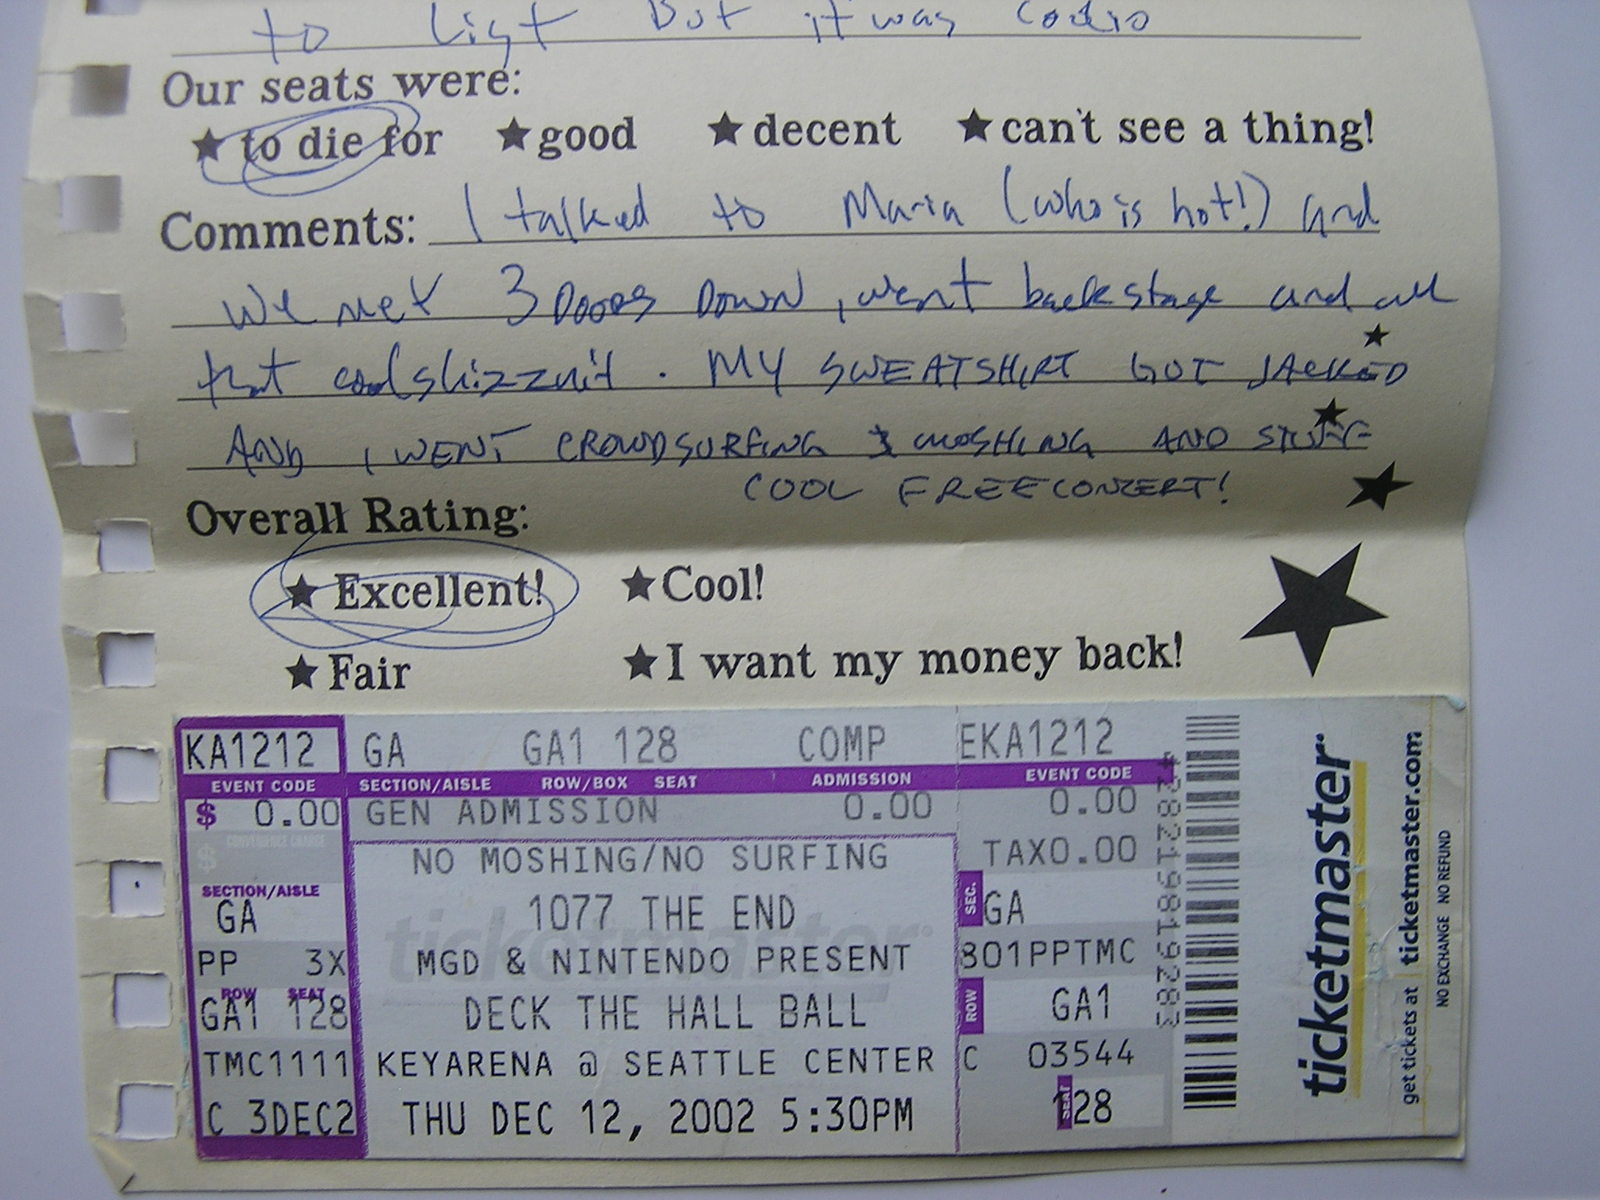 to list but it was
Our seats were:
★ to die for ★ good ★ decent ★ can't see a thing!
Comments: I talked to Maria (who is hot!) and
we met 3 Doors Down, went backstage and all
that cool shizznit. MY SWEATSHIRT GOT JACKED
AND I WENT CROWDSURFING & MOSHING AND STUFF
COOL FREE CONZERT!
Overall Rating:
★ Excellent! ★ Cool!
★ Fair ★ I want my money back!
KA1212 GA GA1 128 COMP EKA1212
EVENT CODE SECTION/AISLE ROW/BOX SEAT ADMISSION EVENT CODE
$ 0.00 GEN ADMISSION 0.00 0.00
$ CONVENIENCE CHARGE NO MOSHING/NO SURFING TAX0.00
SECTION/AISLE
GA 1077 THE END SEC. GA
PP 3X MGD & NINTENDO PRESENT 801PPTMC
ROW SEAT
GA1 128 DECK THE HALL BALL ROW GA1
TMC1111 KEYARENA @ SEATTLE CENTER C 03544
C 3DEC2 THU DEC 12, 2002 5:30PM SEAT 128
ticketmaster
ticketmaster
get tickets at ticketmaster.com
NO EXCHANGE NO REFUND